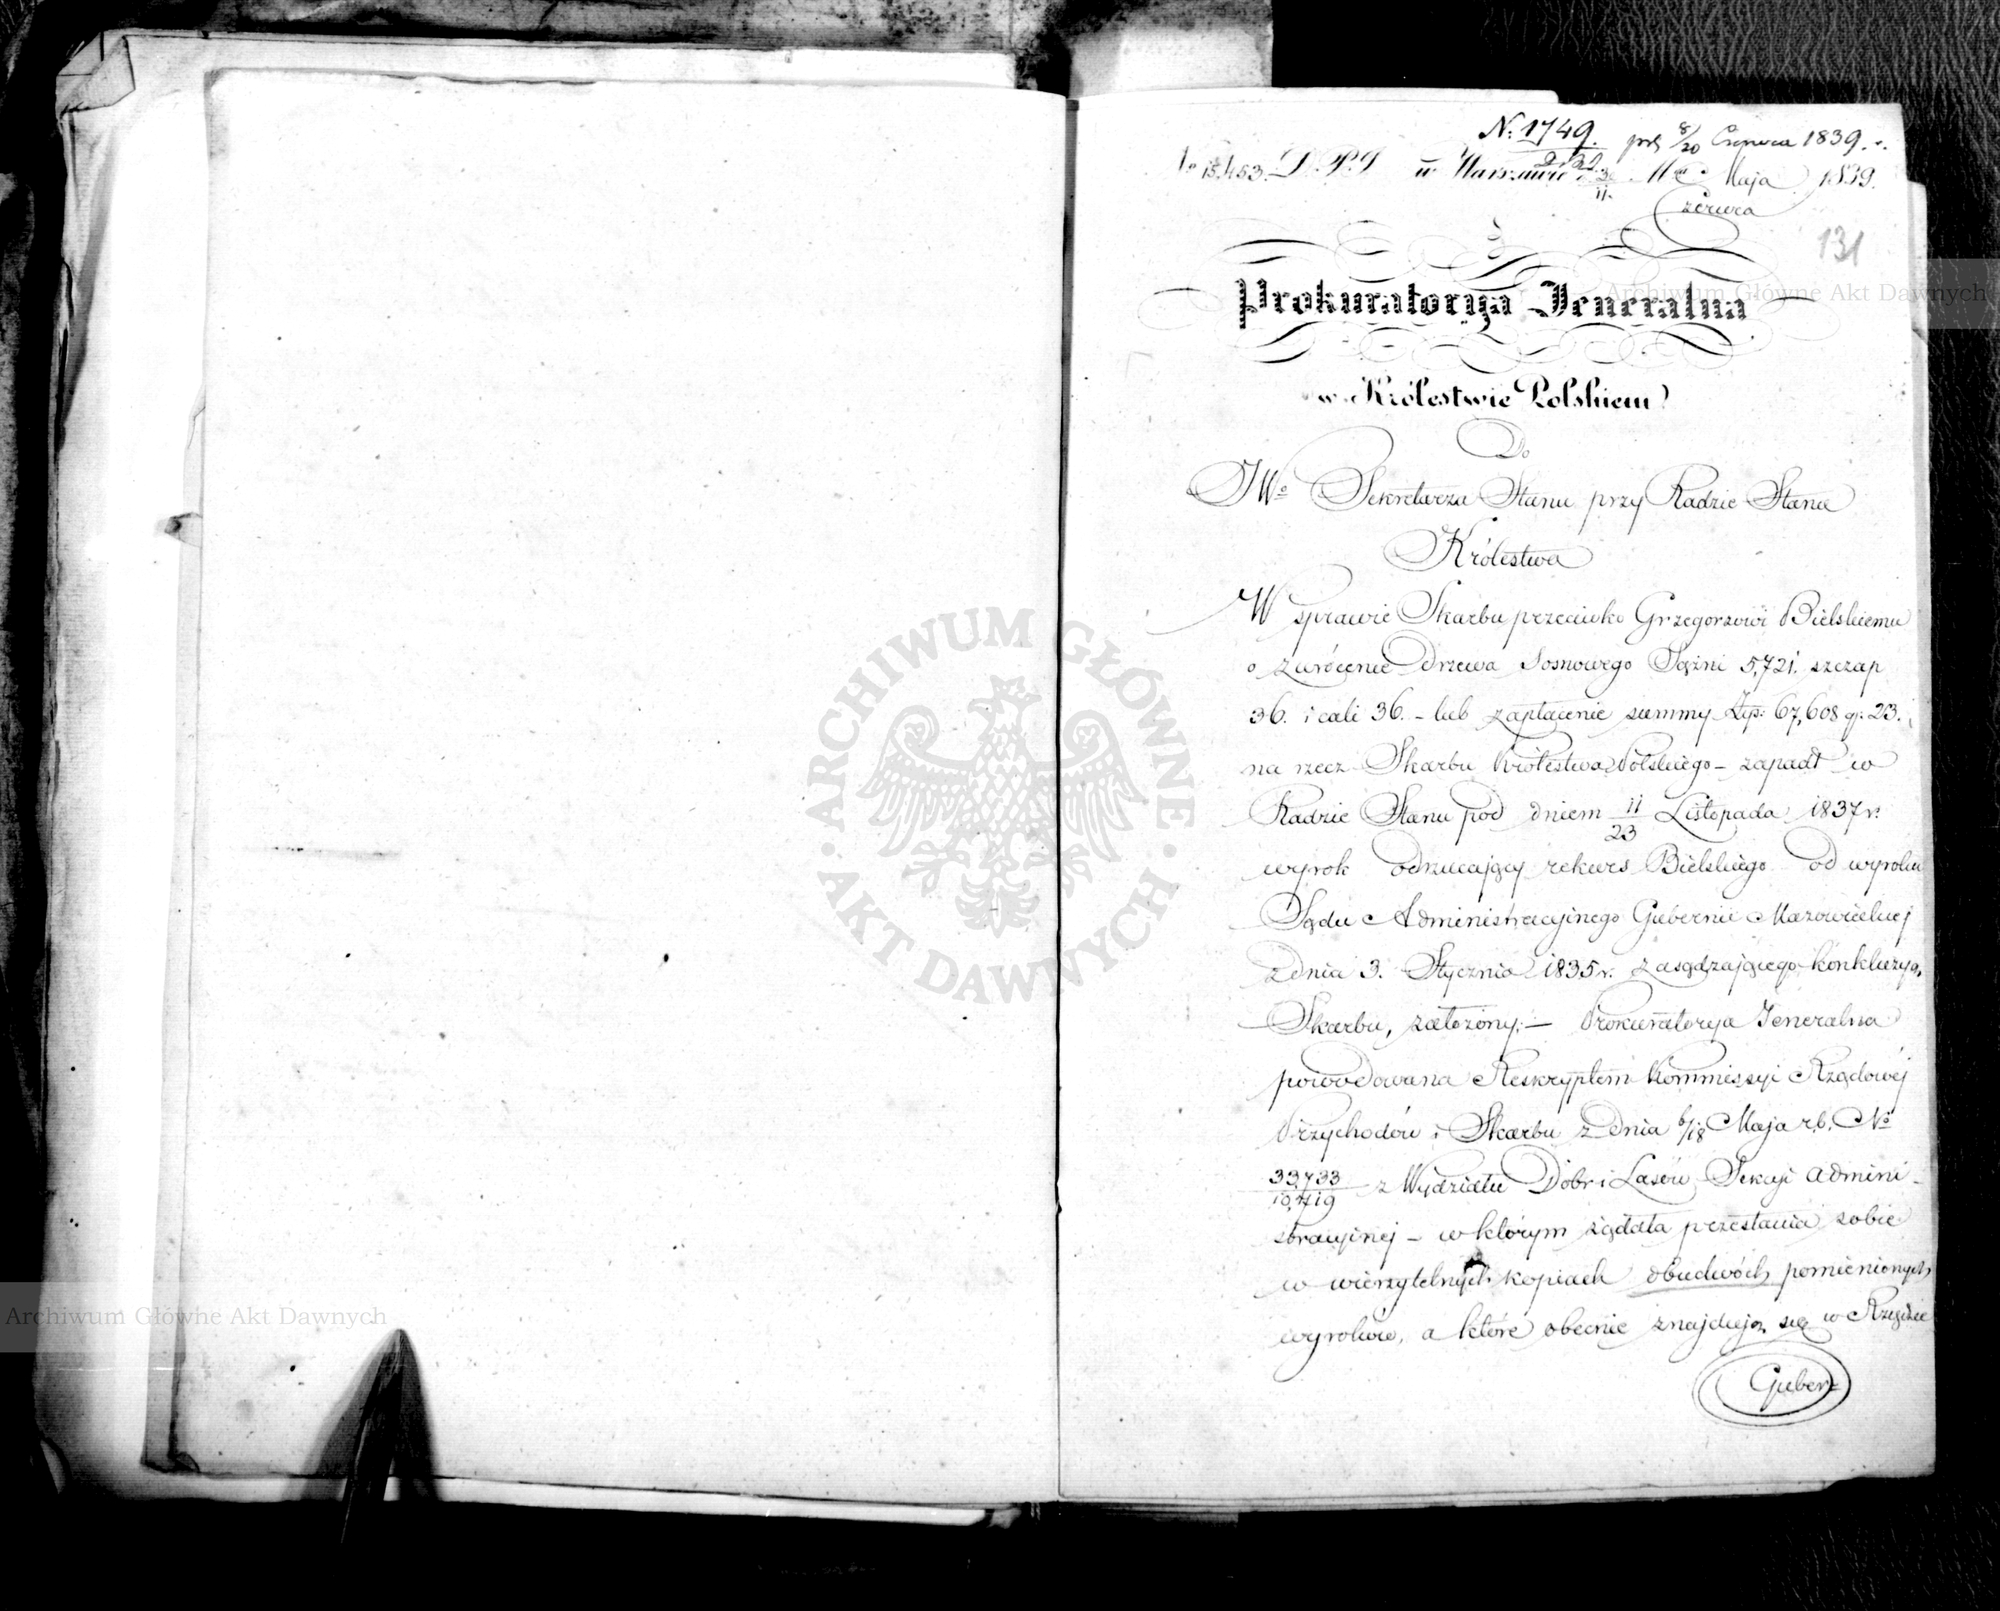 N. 1749. prs 8/20 Czerwca 1839. r.
No 15,453. D. P. J w Warszawie d. 30/11. Mca Maja 1839.
Czerwca
131
Prokuratorya Jeneralna
w Królestwie Polskiem
Do
JWo Sekretarza Stanu przy Radzie Stanu
Królestwa
W sprawie Skarbu przeciwko Grzegorzowi Bielskiemu
o zwrócenie drzewa sosnowego Sążni 5,721. szczap
36. i cali 36. – lub zapłacenie summy Złp: 67,608 gr: 23.
na rzecz Skarbu Królestwa Polskiego – zapadł w
Radzie Stanu pod dniem 11/23 Listopada 1837 r.
wyrok odrzucający rekurs Bielskiego od wyroku
Sądu Administracyjnego Gubernii Mazowieckiej
z dnia 3. Stycznia 1835 r. zasądzającego konkluzyą
Skarbu, założony; – Prokuratorya Jeneralna
powodowana Reskryptem Kommissyi Rządowej
Przychodów i Skarbu z dnia 6/18 Maja r. b. No
33,733/10,719 z Wydziału Dóbr i Lasów Sekcyi Admini
stracyinej – w którym żądała przesłania sobie
w wierzytelnych kopiach obudwóch pomienionych
wyroków, a które obecnie znajdują się w Rządzie
Guber=
ARCHIWUM GŁÓWNE AKT DAWNYCH
Archiwum Główne Akt Dawnych
Archiwum Główne Akt Dawnych